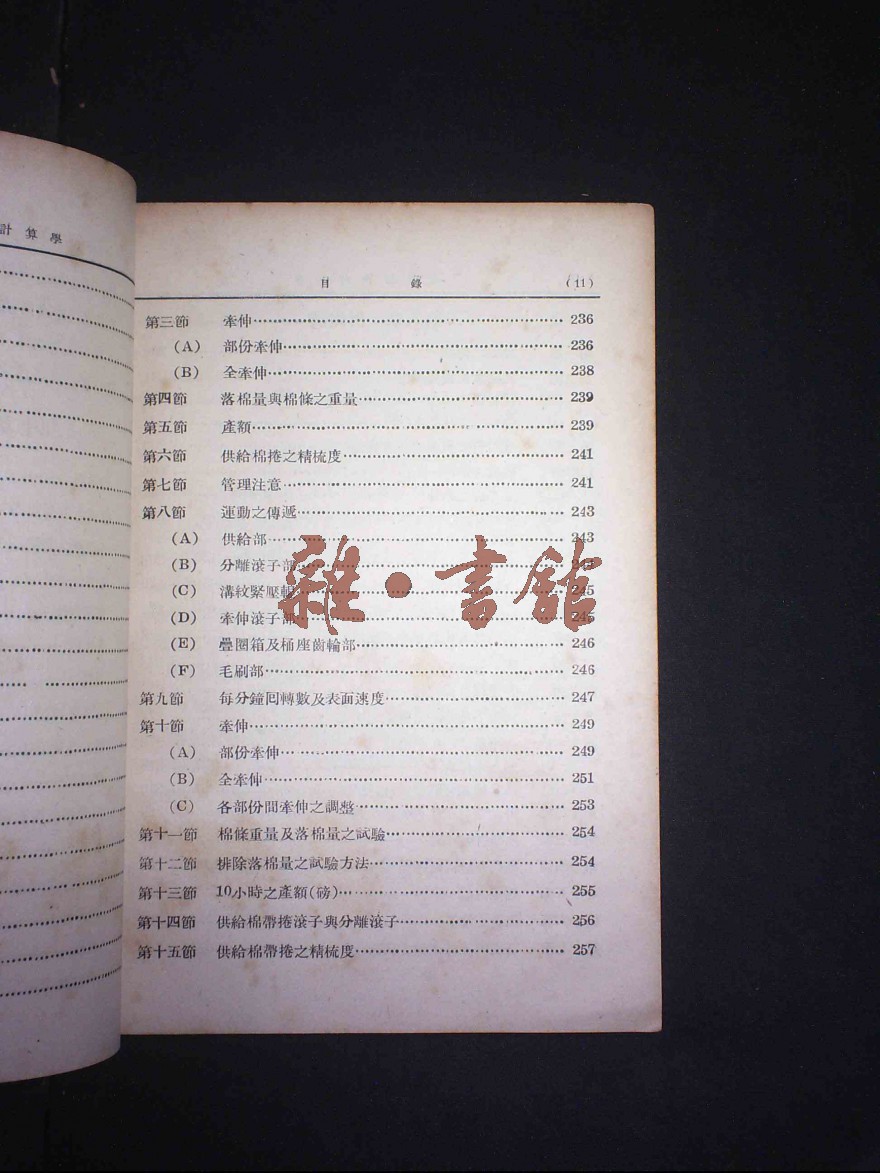 計算學
目錄 (11)
第三節 牽伸 236
(A) 部份牽伸 236
(B) 全牽伸 238
第四節 落棉量與棉條之重量 239
第五節 產額 239
第六節 供給棉捲之精梳度 241
第七節 管理注意 241
第八節 運動之傳遞 243
(A) 供給部 243
(B) 分離滾子部
(C) 溝紋緊壓輥 245
(D) 牽伸滾子部 245
(E) 疊圈箱及桶座齒輪部 246
(F) 毛刷部 246
第九節 每分鐘囘轉數及表面速度 247
第十節 牽伸 249
(A) 部份牽伸 249
(B) 全牽伸 251
(C) 各部份間牽伸之調整 253
第十一節 棉條重量及落棉量之試驗 254
第十二節 排除落棉量之試驗方法 254
第十三節 10小時之產額(磅) 255
第十四節 供給棉帶捲滾子與分離滾子 256
第十五節 供給棉帶捲之精梳度 257
雜·書館